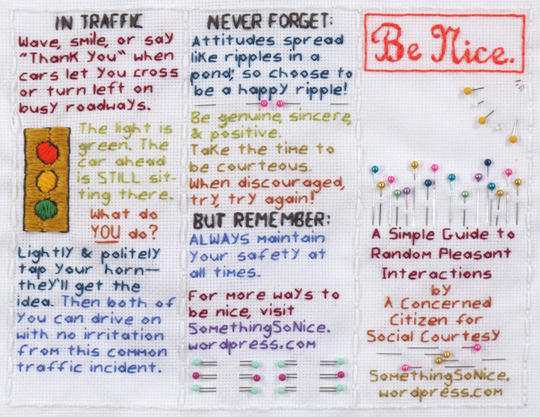 IN TRAFFIC
Wave, smile, or say
"Thank You" when
cars let you cross
or turn left on
busy roadways.
The light is
green. The
car ahead
is STILL sit-
ting there.
What do
YOU do?
Lightly & politely
tap your horn—
they'll get the
idea. Then both of
you can drive on
with no irritation
from this common
traffic incident.
NEVER FORGET:
Attitudes spread
like ripples in a
pond; so choose to
be a happy ripple!
Be genuine, sincere,
& positive.
Take the time to
be courteous.
When discouraged,
try, try again!
BUT REMEMBER:
ALWAYS maintain
your safety at
all times.
For more ways to
be nice, visit
SomethingSoNice.
wordpress.com
Be Nice.
A Simple Guide to
Random Pleasant
Interactions
by
A Concerned
Citizen for
Social Courtesy
SomethingSoNice.
wordpress.com